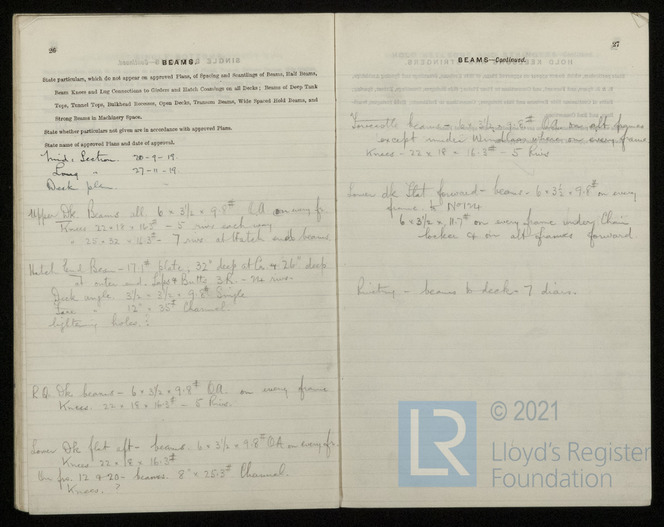 26
BEAMS.
State particulars, which do not appear on approved Plans, of Spacing and Scantlings of Beams, Half Beams,
Beam Knees and Lug Connections to Girders and Hatch Coamings on all Decks; Beams of Deep Tank
Tops, Tunnel Tops, Bulkhead Recesses, Open Decks, Transom Beams, Wide Spaced Hold Beams, and
Strong Beams in Machinery Space.
State whether particulars not given are in accordance with approved Plans.
State name of approved Plans and date of approval.
Mid: Section. 20-9-19.
Long " 27-11-19.
Deck plan
Upper Dk Beams all 6 × 3½ × 9.8# OA on every fr.
Knees 22×18×16.3# - 5 rivs each way
" 25×32×16.3# - 7 rivs at Hatch ends beams
Hatch End Beam - 17.1# plate, 32" deep at Cr. & 26" deep
at outer end. Laps & Butts 3.R. - 24 rivs.
Deck angle 3½ × 3½ × 9.8# Single
Face " 12" × 35# Channel
lightening holes ?
R.Q. Dk. beams - 6 × 3½ × 9.8# OA. on every frame
Knees. 22 × 18 × 16.3# - 5 Rivs.
Lower Dk flat aft - beams. 6 × 3½ × 9.8# OA on every fr.
Knees 22 × 18 × 16.3#
fr. 12 & 20 - beams. 8" × 25.3# Channel.
Knees. ?
27
BEAMS—Continued.
Forecastle beams - 6 × 3½ × 9.8# OA on alt frames
except under Windlass where on every frame
Knees - 22 × 18 × 16.3# - 5 Rivs
Lower dk flat forward - beams - 6 × 3½ × 9.8# on every
frame to No 124
6 × 3½ × 11.7# on every frame under Chain
locker & on alt frames forward.
Riveting - beams to deck - 7 diars.
© 2021
LR
Lloyd's Register
Foundation